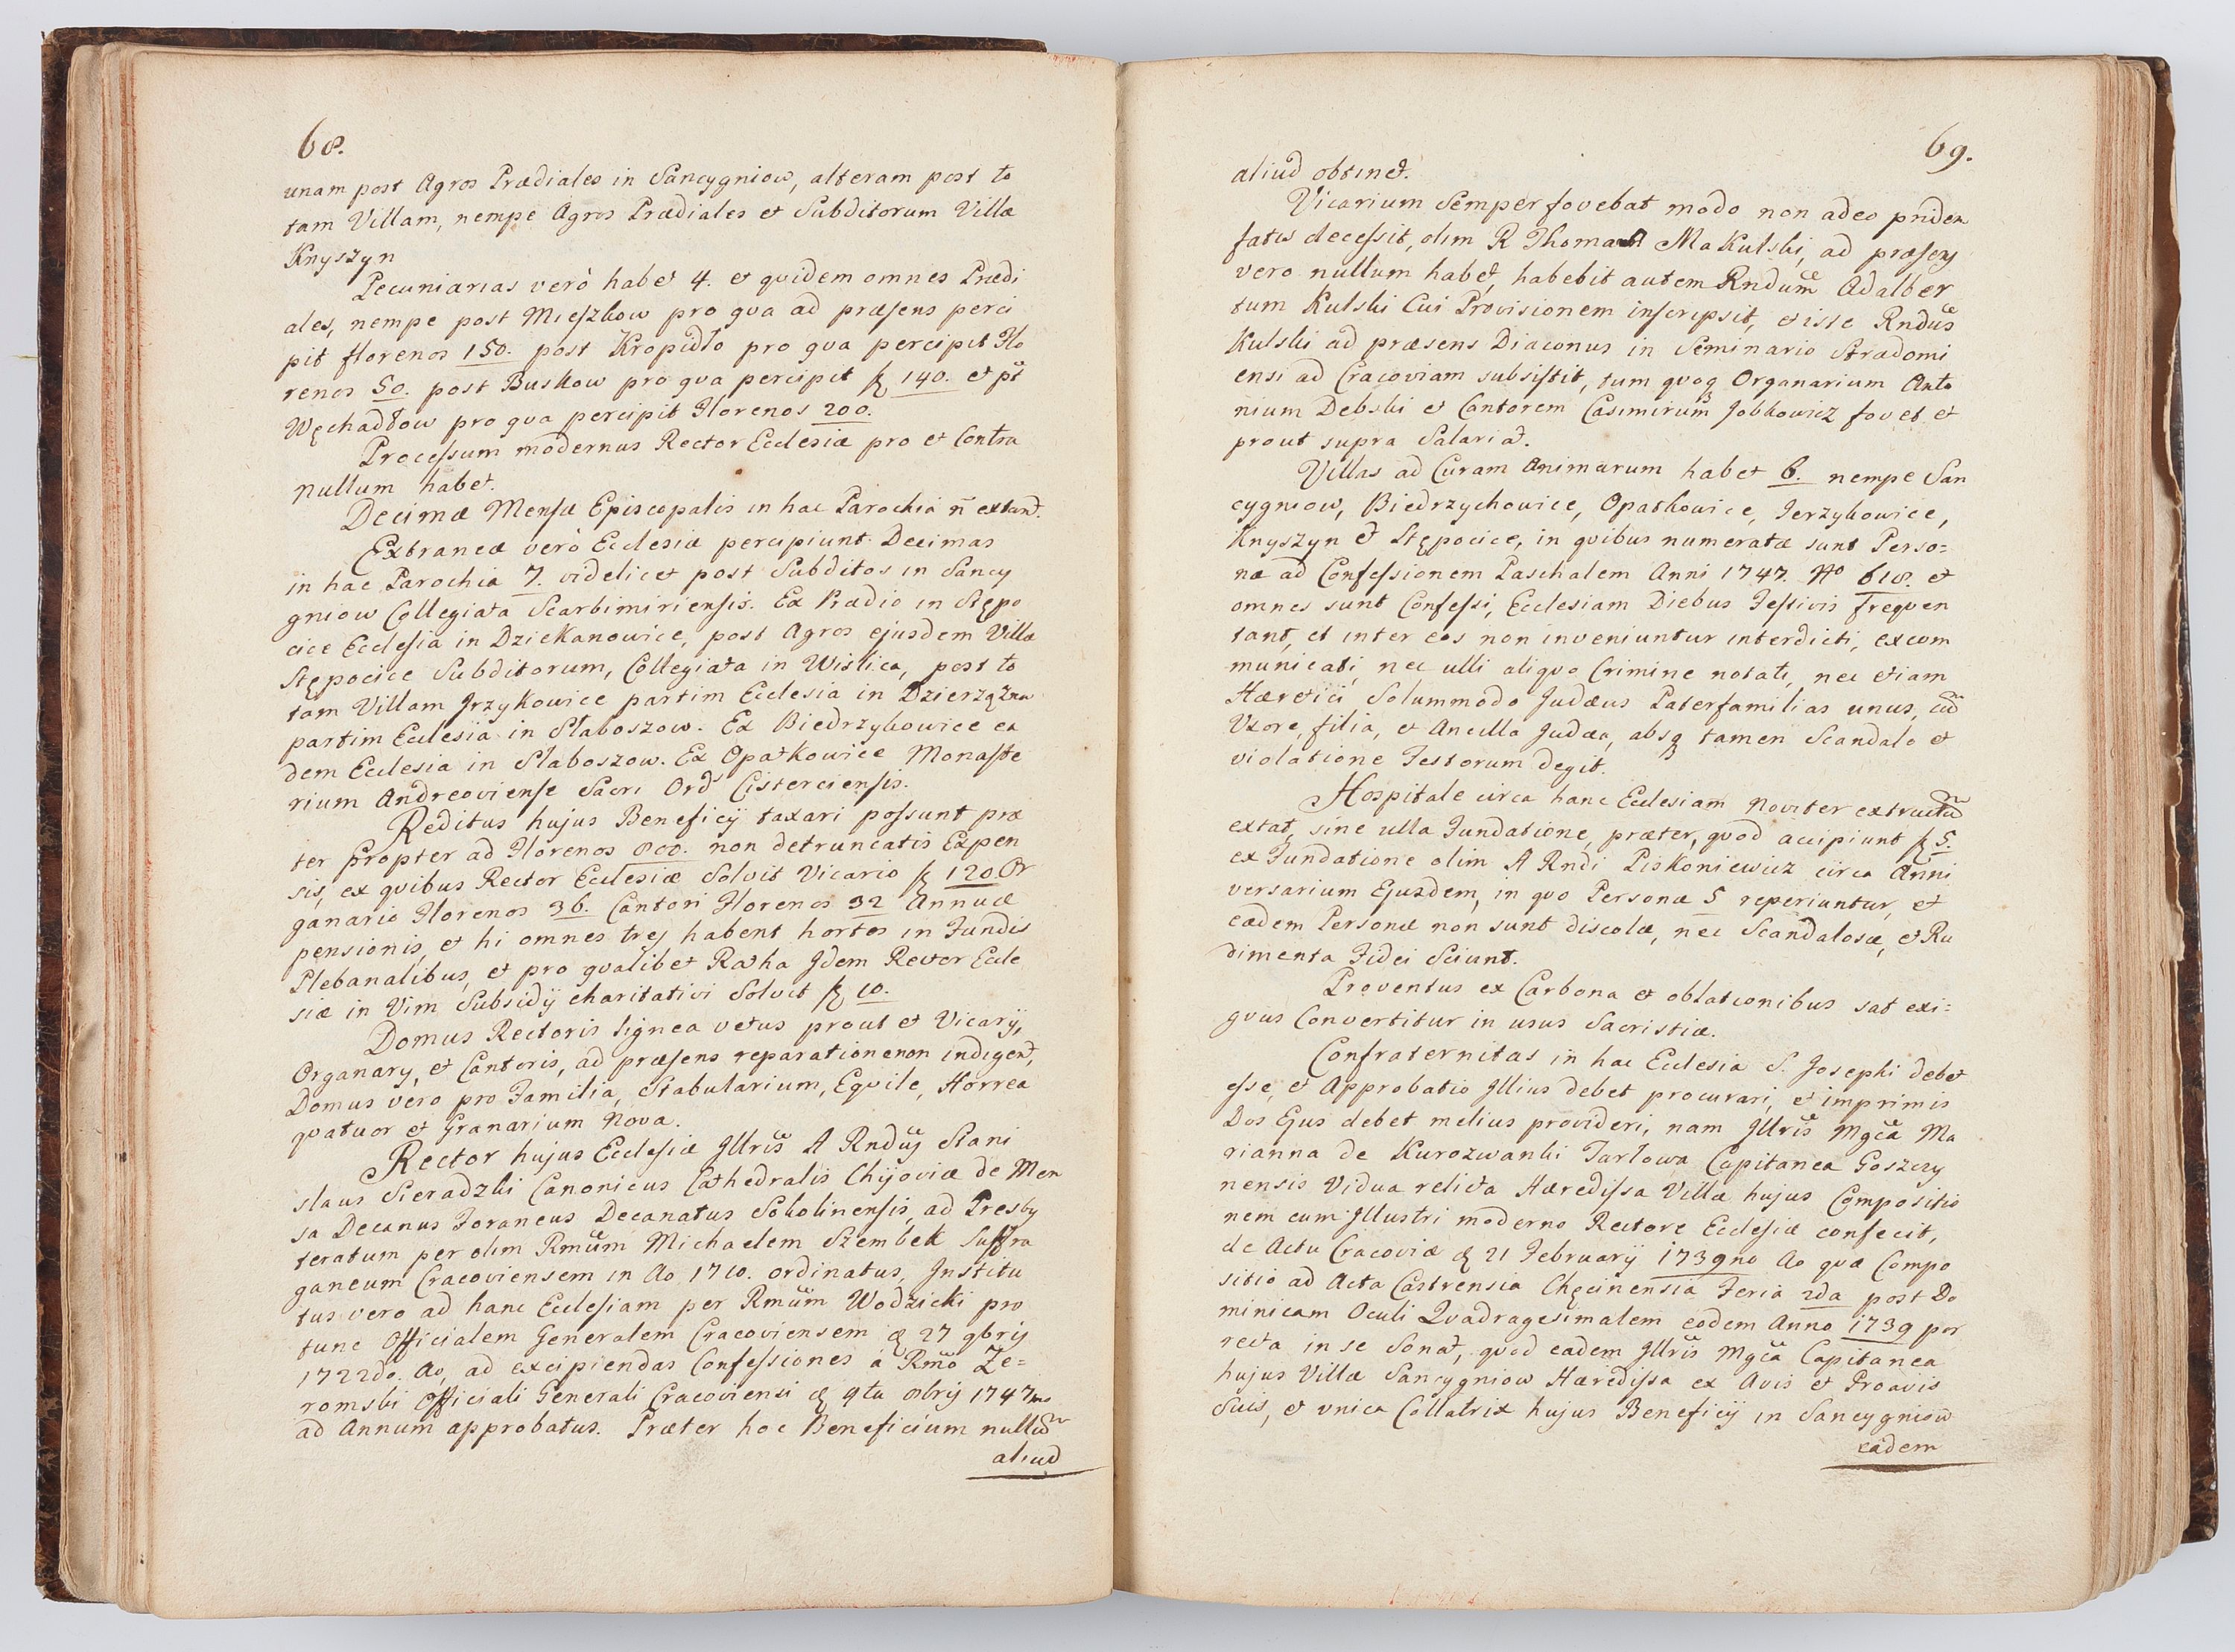 68.
unam post Agros Prædiales in Sancygniow, alteram post to
tam Villam, nempe Agros Prædiales et Subditorum Villæ
Knyszyn
Pecuniarias verò habet 4. et quidem omnes Prædi
ales, nempe post Mieszkow pro qua ad præsens perci
pit florenos 150. post Kropidło pro qua percipit Flo
renos 50. post Buskow pro qua percipit fl 140. et pt
Węchadłow pro qua percipit Florenos 200.
Processum modernus Rector Ecclesiæ pro et Contra
nullum habet.
Decimæ Mensæ Episcopalis in hac Parochia n̄ extant.
Extraneæ verò Ecclesiæ percipiunt Decimas
in hac Parochia 7. videlicet post Subditos in Sancy
gniow Collegiata Scarbimiriensis. Ex Prædio in Stępo
cice Ecclesia in Dziekanowice, post Agros ejusdem Villæ
Stępocice Subditorum, Collegiata in Wislica, post to
tam Villam Jrzykowice partim Ecclesia in Dzierzążna
partim Ecclesia in Słaboszow. Ex Biedrzykowice ea
dem Ecclesia in Słaboszow. Ex Opatkowice Monaste
rium Andreoviense Sacri Ords Cisterciensis.
Reditus hujus Beneficij taxari possunt præ
ter propter ad Florenos 800. non detruncatis Expen
sis, ex quibus Rector Ecclesiæ Solvit Vicario fl 120 Or
ganario Florenos 36. Cantori Florenos 32 Annuæ
pensionis, et hi omnes tres habent hortos in Fundis
Plebanalibus, et pro qualibet Ratha Jdem Rector Eccle
siæ in Vim Subsidij charitativi Solvit fl 10.
Domus Rectoris lignea vetus prout et Vicarij,
Organary, et Cantoris, ad præsens reparatione non indigent,
Domus vero pro Familia, Stabularium, Equile, Horrea
quatuor et Granarium Nova.
Rector hujus Ecclesiæ Jllris A Rndus Stani
slaus Sieradzki Canonicus Cathedralis Chijoviæ de Men
sa Decanus Foraneus Decanatus Sokolinensis, ad Presby
teratum per olim Rmum Michaelem Szembek Suffra
ganeum Cracoviensem in Ao 1710. ordinatus, Institu
tus vero ad hanc Ecclesiam per Rmum Wodzicki pro
tunc Officialem Generalem Cracoviensem d 27 9bris
1722do. Ao, ad excipiendas Confessiones a Rmo Że=
romski Officiali Generali Cracoviensi d 9ta 8bris 1747mo
ad Annum approbatus. Præter hoc Beneficium nullū
aliud
69.
aliud obtinet.
Vicarium Semper fovebat modo non adeo pridem
fatis decessit, olim R Thomas Makulski, ad præsens
vero nullum habet, habebit autem Rndum Adalber
tum Kulski Cui Provisionem inscripsit, et iste Rndus
Kulski ad præsens Diaconus in Seminario Stradomi
ensi ad Cracoviam subsistit, tum quoq Organarium Anto
nium Debski et Cantorem Casimirum Jobkowicz fovet et
prout supra Salariat.
Villas ad Curam Animarum habet 6. nempe San
cygniow, Biedrzychowice, Opatkowice, Jerzykowice,
Knyszyn et Stępocice, in quibus numeratæ sunt Perso=
næ ad Confessionem Paschalem Anni 1747. No 618. et
omnes sunt Confessi, Ecclesiam Diebus Festivis frequen
tant, et inter eos non inveniuntur interdicti, excom
municati, nec ulli aliquo Crimine notati, nec etiam
Hæretici Solummodo Judæus Paterfamilias unus, cū
Uxore, filia, et Ancilla Judæa, absq tamen Scandalo et
violatione Festorum degit.
Hospitale circa hanc Ecclesiam Noviter extructū
extat, sine ulla Fundatione, præter, quod accipiunt fl 5.
ex Fundatione olim A Rndi Piskoniewicz circa Anni
versarium Ejusdem, in quo Personæ 5 reperiuntur, et
eædem Personæ non sunt discolæ, nec Scandalosæ, et Ru
dimenta Fidei Sciunt.
Proventus ex Carbona et oblationibus sat exi=
guus Convertitur in usus Sacristiæ.
Confraternitas in hac Ecclesia S. Josephi debet
esse, et Approbatio Jllius debet procurari, et imprimis
Dos Ejus debet melius provideri, nam Jllris Mgca Ma
rianna de Kurozwanki Tarłowa Capitanea Goszczy
nensis Vidua relicta Hæredissa Villæ hujus Compositio
nem cum Jllustri moderno Rectore Ecclesiæ confecit,
de Actu Cracoviæ d 21 Februarij 1739no Ao quæ Compo
sitio ad Acta Castrensia Chęcinensia Feria 2da post Do
minicam Oculi Quadragesimalem eodem Anno 1739 por
recta in se Sonat, quod eadem Jllris Mgca Capitanea
hujus Villæ Sancygniow Hæredissa ex Avis et Proavis
Suis, et unica Collatrix hujus Beneficij in Sancygniow
eadem